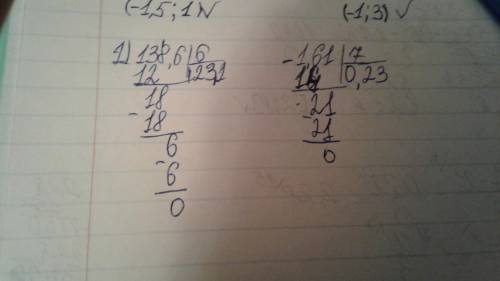 (-1,5; 1) (-1; 3) ✓
1) 138,6 | 6 - 1,61 | 7
12 | 23,1 14 | 0,23
18 - 21
- 18 - 21
6 0
- 6
0